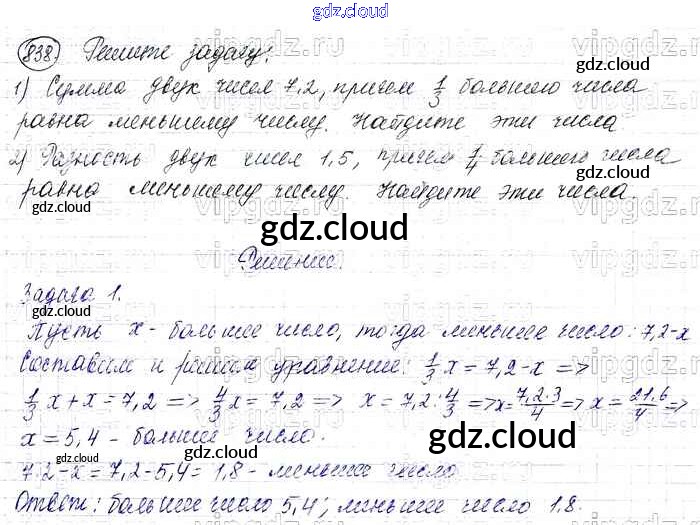 gdz.cloud
838) Решите задачу:
1) Сумма двух чисел 7,2, причем 1/3 большего числа
равна меньшему числу. Найдите эти числа
2) Разность двух чисел 1,5, причем 1/4 большего числа
равна меньшему числу. Найдите эти числа.
gdz.cloud
Решение.
Задача 1.
Пусть x - большее число, тогда меньшее число: 7,2-x
Составим и решим уравнение: 1/3 x = 7,2-x =>
1/3 x + x = 7,2 => 4/3 x = 7,2 => x = 7,2 : 4/3 => x = 7,2·3/4 => x = 21,6/4 =>
x = 5,4 - большее число.
7,2-x = 7,2-5,4 = 1,8 - меньшее число
Ответ: большее число 5,4; меньшее число 1,8.